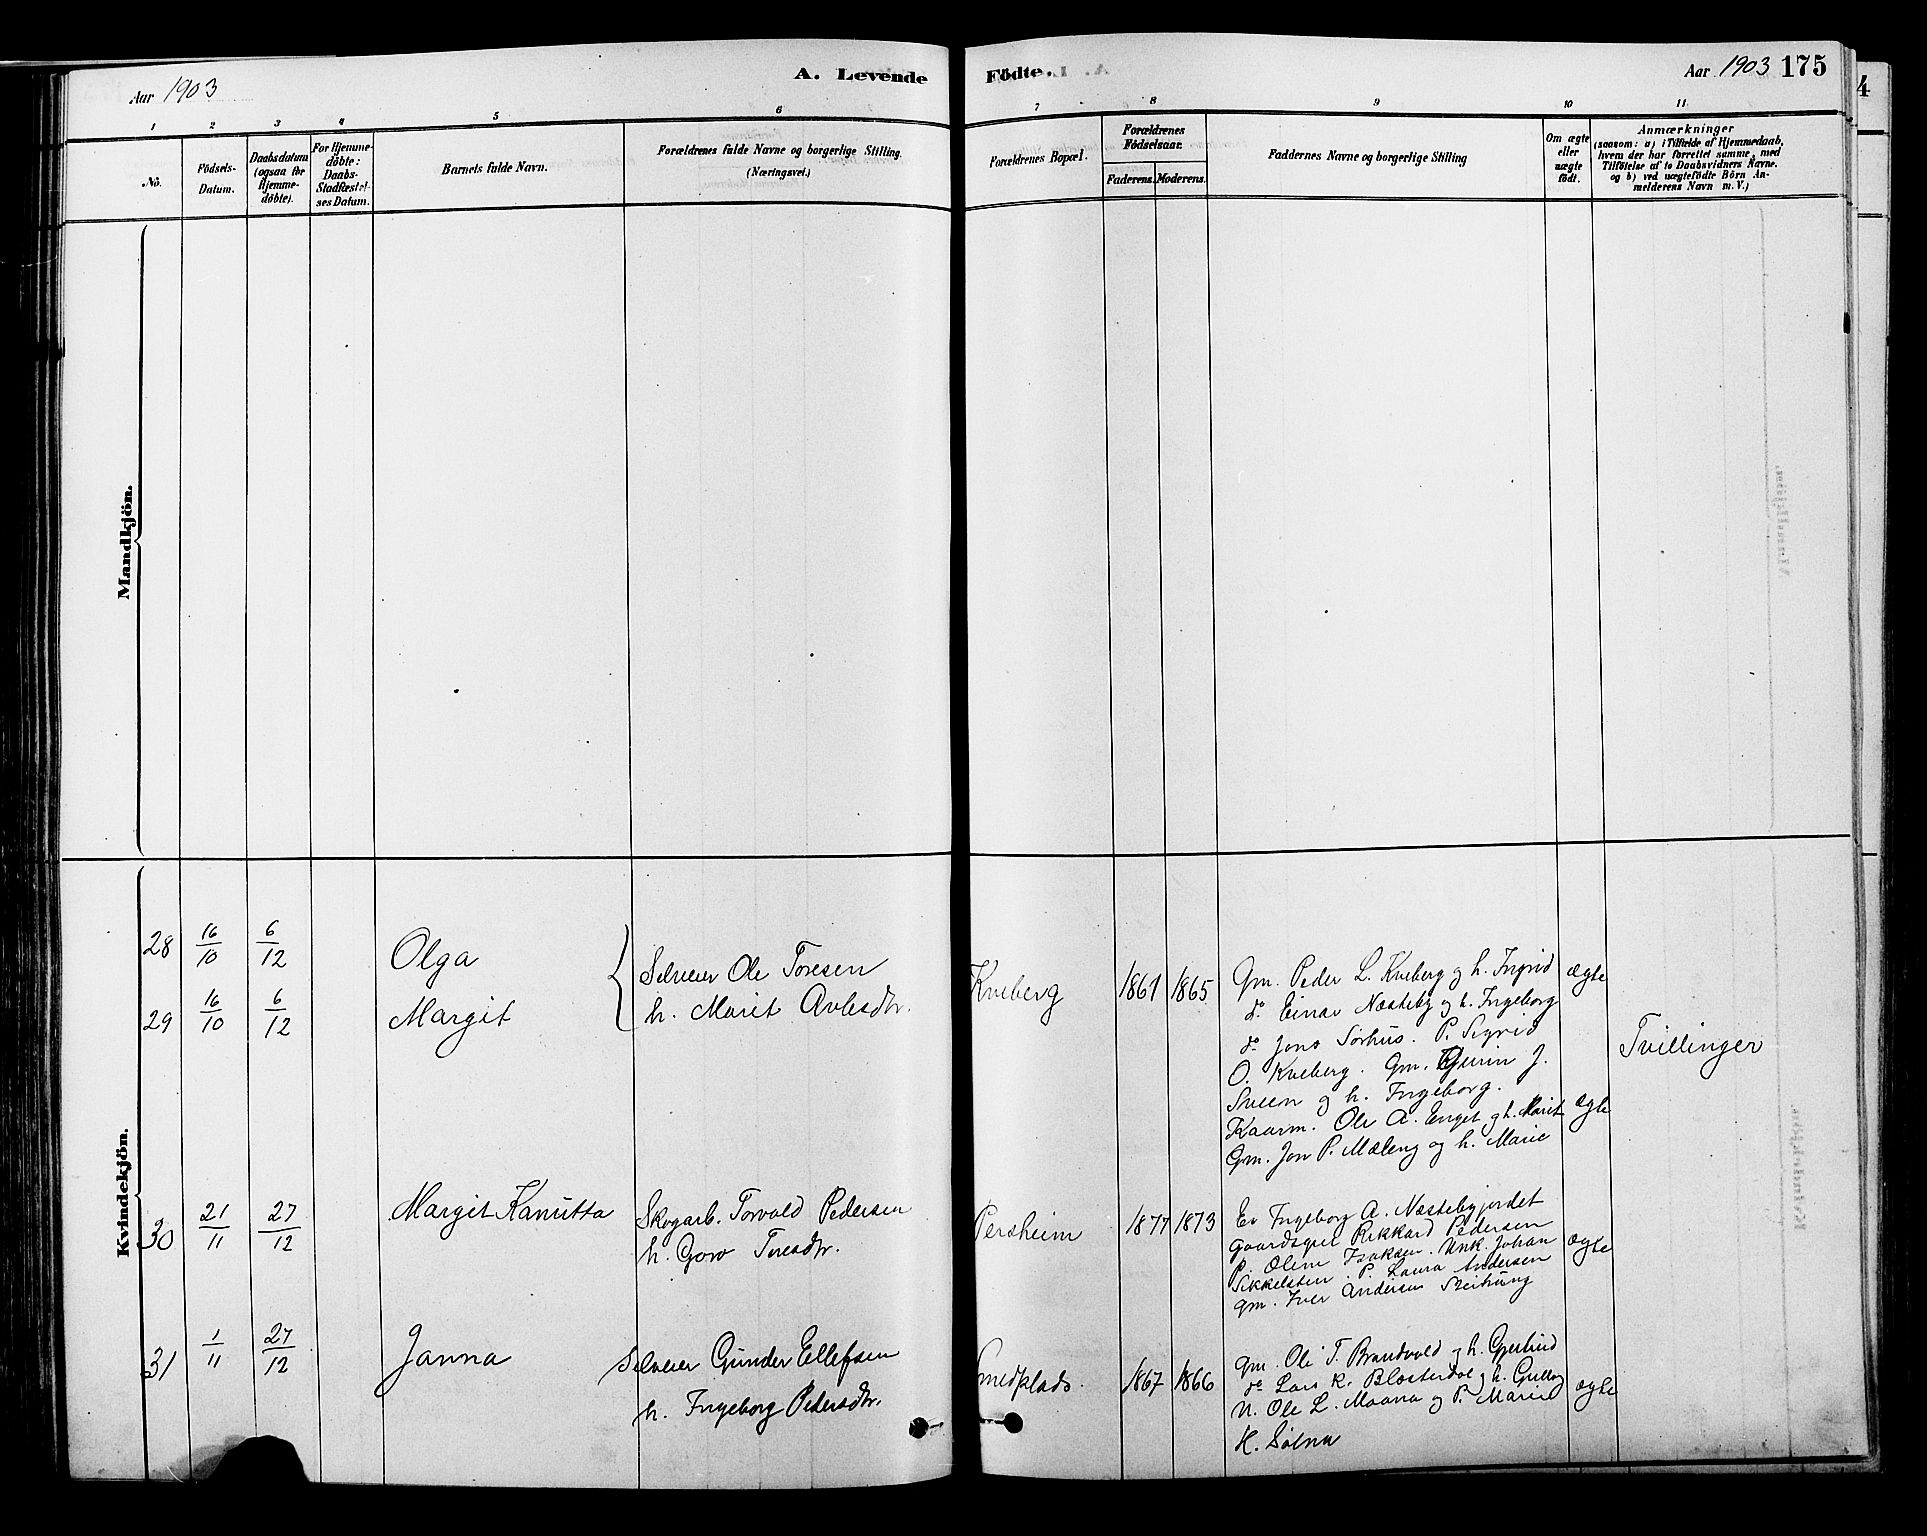 Aar 1903
A. Levende Födte.
Aar 1903 175
1 2 3 4 5 6 7 8 9 10 11
No.
Födsels-Datum.
Daabsdatum (ogsaa for Hjemme-döbte).
For Hjemme-döbte: Daabs-Stadfæstel-ses Datum.
Barnets fulde Navn.
Forældrenes fulde Navne og borgerlige Stilling. (Næringsvei.)
Forældrenes Bopæl.
Forældrenes Födselsaar.
Faderens. Moderens.
Faddernes Navne og borgerlige Stilling
Om ægte eller uægte födt.
Anmærkninger
(saasom: a) i Tilfælde af Hjemmedaab,
hvem der har forrettet samme, med
Tilföielse af to Daabsvidners Navne.
og b) ved uægtefödte Börn An-
melderens Navn m. V.)
Mandkjön.
Kvindekjön.
28 16/10 6/12 Olga
29 16/10 6/12 Margit
Selveier Ole Toresen
h. Marit Avlesdtr.
Kveberg 1861 1865
Gm. Peder L. Kveberg og h. Ingrid ægte
do Einar Næsteby og h. Ingeborg
do Jons Sørhus. P. Sigrid
O. Kveberg. Gm. J.
Sveen og h. Ingeborg.
Kaarm. Ole A. Enget og h. Marit ægte
Gm. Jon P. Mæleng og h. Marie
Tvillinger
30 21/11 27/12 Margit Kanutta
Skogarb. Torvald Pedersen
h. Goro Toresdtr.
Persheim 1877 1873
E. Ingeborg A. Næstebyjordet
Gaardsgut Rikkard Pedersen
P. Oline Isaksen. Unk. Johan ægte
Sikkelsten. P. Laura Andersen
gm. Iver Andersen
31 1/11 27/12 Janna
Selveier Gunder Ellefsen
h. Ingeborg Pedersdtr.
Smedplads. 1867 1866
gm. Ole T. Brandvold og h. Gjertrud
do Lars K. Blæsterdal og h. ægte
U. Ole L. Moana og P. Marie
H. Sølna